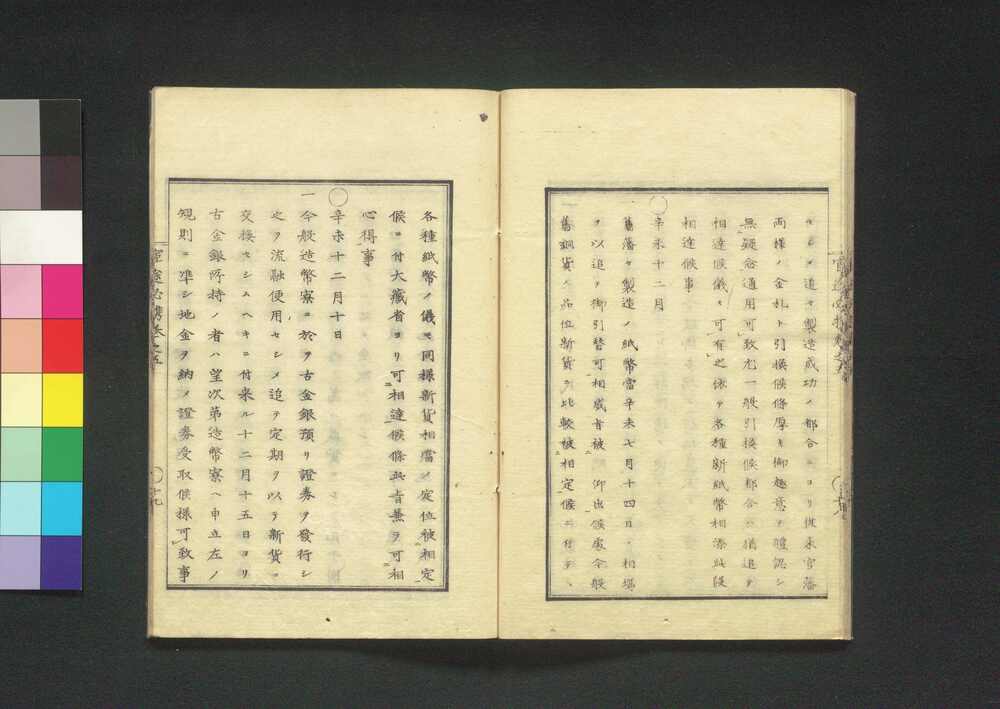 セシメ追々製造成功ノ都合ニヨリ従来官藩
両様ノ金札ト引換候條厚キ御趣意ヲ體認シ
無疑念通用可致尤一般引換候都合ハ猶追テ
相達候儀モ可有之依テ各種新紙幣相添此段
相達候事
◯
辛未十二月
一舊藩々製造ノ紙幣當辛未七月十四日ノ相場
ヲ以追々御引替可相成旨被 仰出候處今般
舊銅貨ノ品位新貨ヲ比較被相定候ニ付テハ
各種紙幣ノ儀モ同様新貨相當ノ定位被相定
候ニ付大藏省ヨリ可相達候條此旨兼テ可相
心得事
◯
辛未十二月十日
一今般造幣寮ニ於テ古金銀預リ證券ヲ發行シ
之ヲ流融便用セシメ追テ定期ヲ以テ新貨ニ
交換セシムヘキニ付来ル十二月十五日ヨリ
古金銀所持ノ者ハ望次第造幣寮ヘ申立左ノ
規則ニ準シ地金ヲ納メ證券受取候様可致事